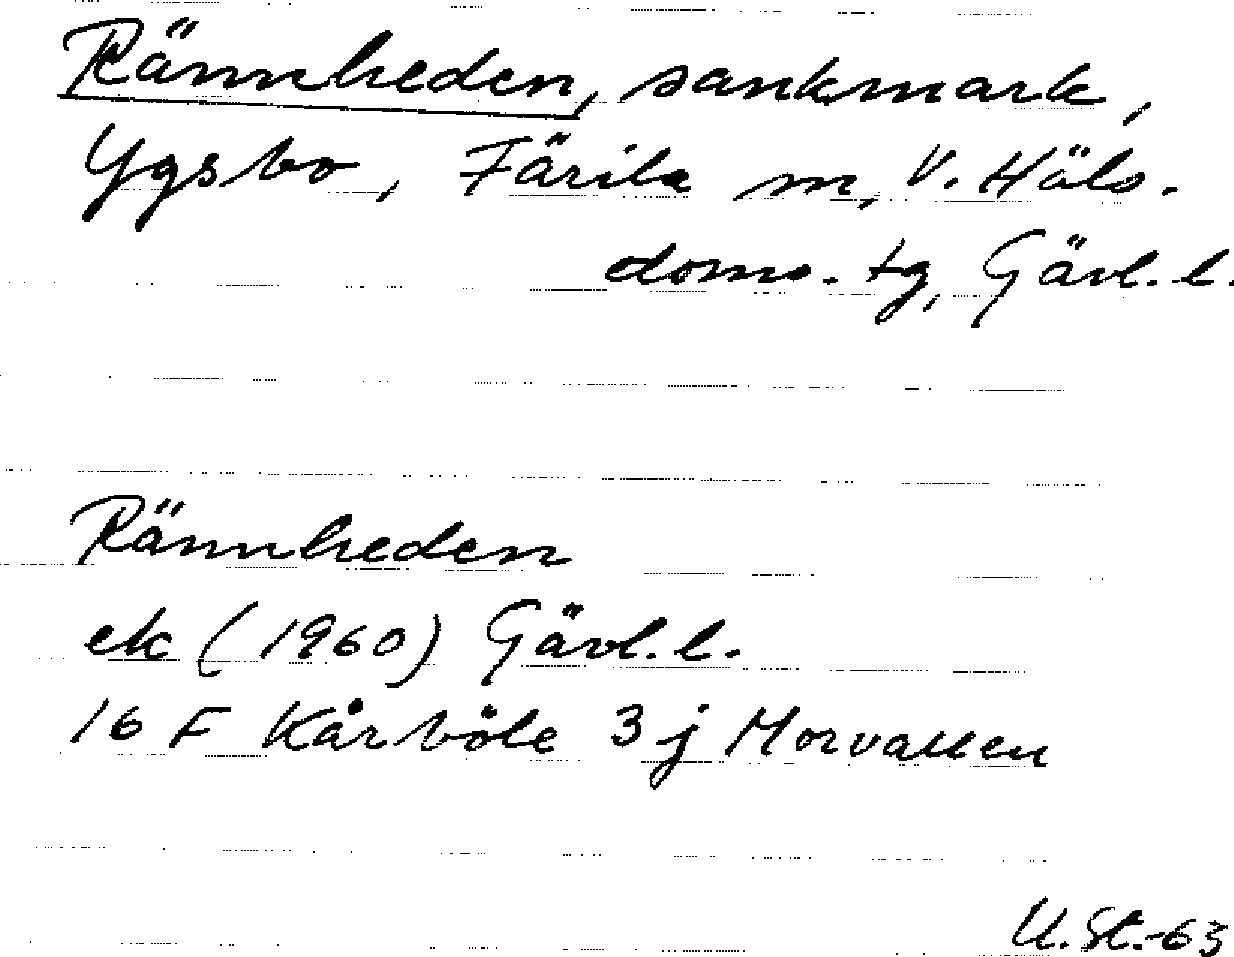 Rännheden, sankmark,
Ygsbo, Färila m, V. Häls.
doms. tg, Gävl. l.
Rännheden
ek (1960) Gävl. l.
16 F Kårböle 3 j Morvallen
U. St. -63